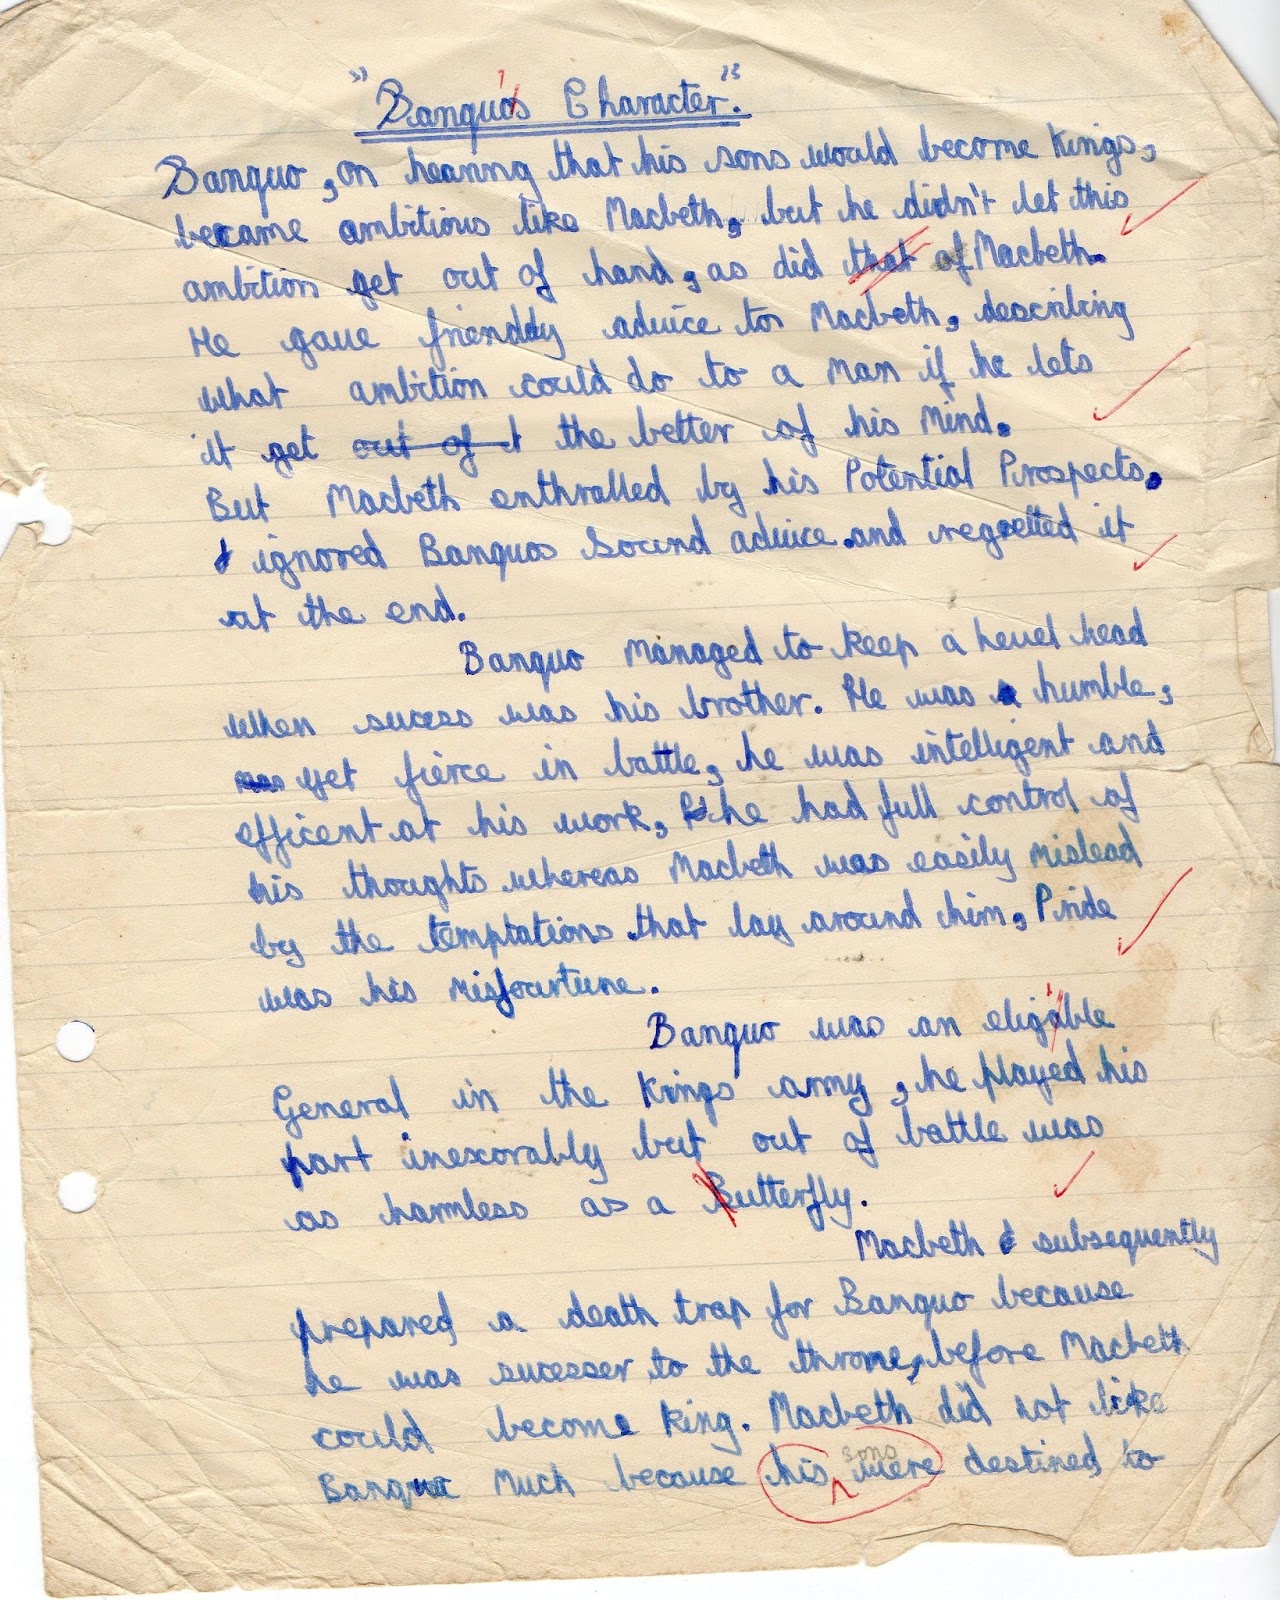 "Banquo's Character".
Banquo, on hearing that his sons would become Kings,
became ambitious like Macbeth, but he didn't let this
ambition get out of hand, as did that of Macbeth.
He gave friendly advice to Macbeth, describing
what ambition could do to a man if he lets
it get out of t the better of his Mind.
But Macbeth enthralled by his Potential Prospects,
ignored Banquos Sound advice and regretted it
at the end.
Banquo managed to keep a level head
when sucess was his brother. He was humble,
yet fierce in battle, he was intelligent and
efficent at his work, he had full control of
his thoughts whereas Macbeth was easily mislead
by the temptations that lay around him, Pride
was his misfourtune.
Banquo was an eligable
General in the Kings army, he played his
part inexorably but out of battle was
as harmless as a Butterfly.
Macbeth subsequently
prepared a death trap for Banquo because
he was sucesser to the throne, before Macbeth
could become King. Macbeth did not like
Banquo much because his sons were destined to